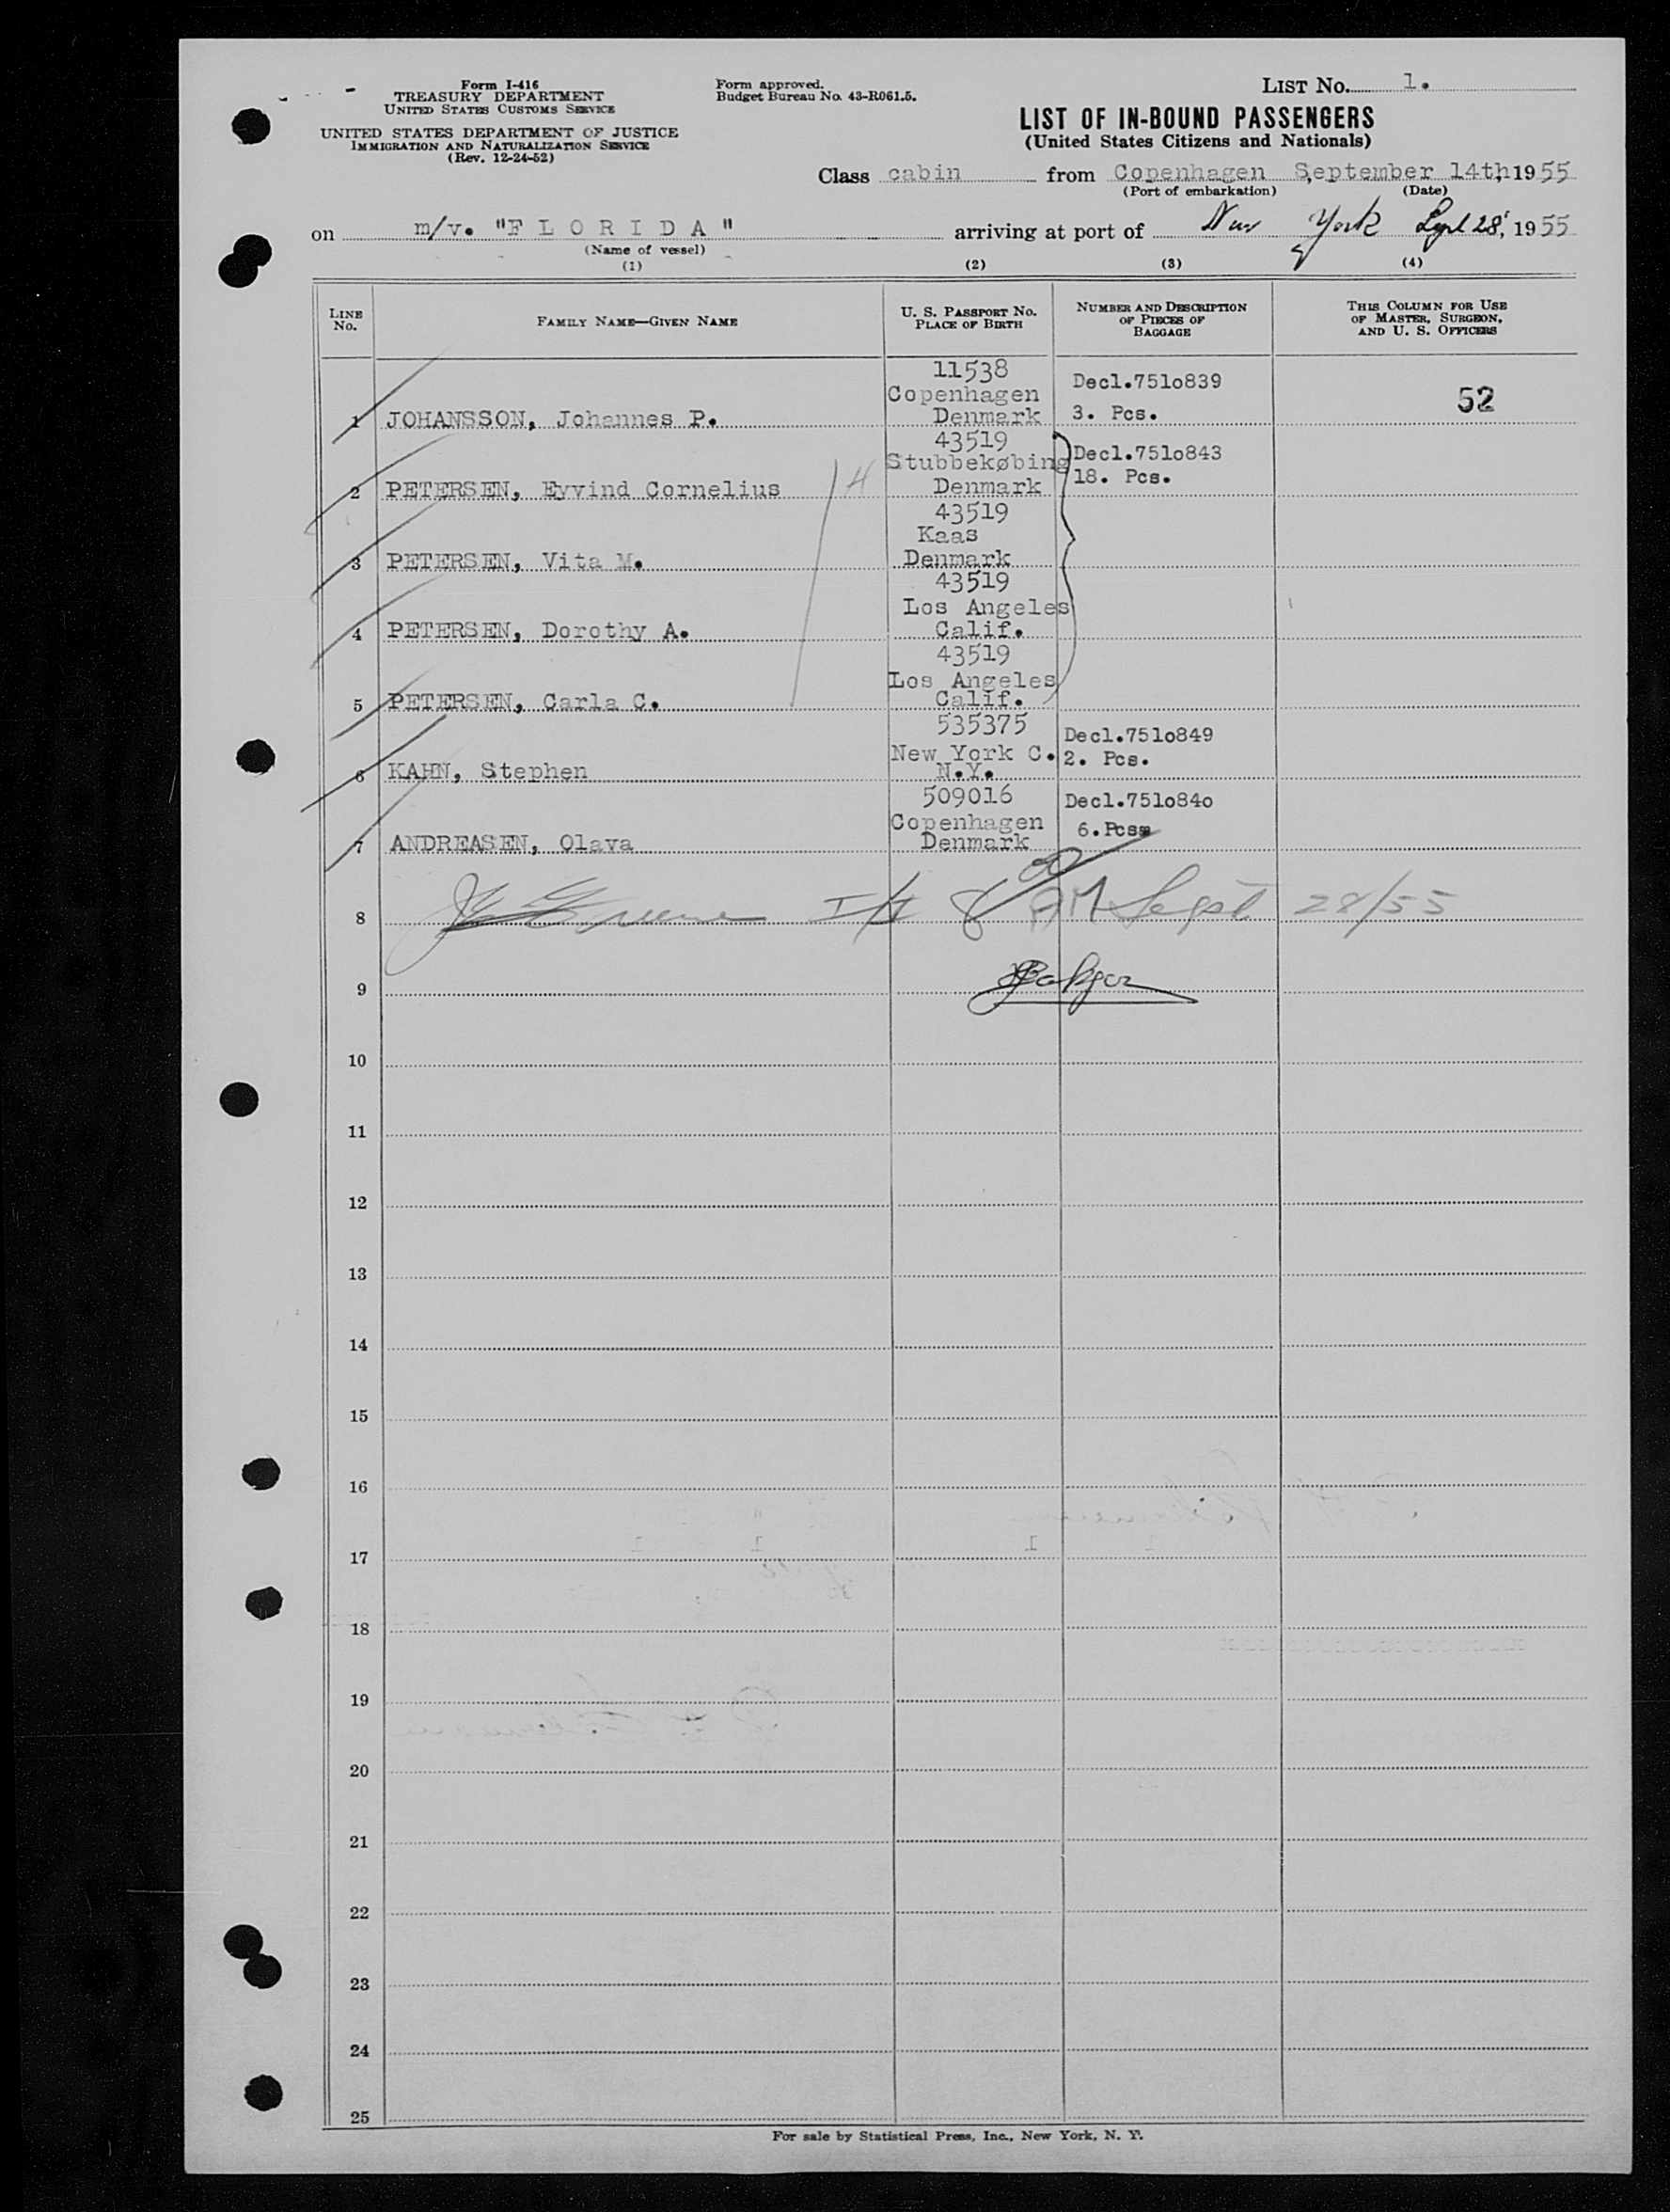 Form I-416
TREASURY DEPARTMENT
UNITED STATES CUSTOMS SERVICE
UNITED STATES DEPARTMENT OF JUSTICE
IMMIGRATION AND NATURALIZATION SERVICE
(Rev. 12-24-52)
Form approved.
Budget Bureau No. 43-R061.5.
LIST No. 1.
LIST OF IN-BOUND PASSENGERS
(United States Citizens and Nationals)
Class cabin from Copenhagen September 14th, 1955
(Port of embarkation) (Date)
on m/v. "F L O R I D A" arriving at port of New York Sept 28, 1955
(Name of vessel)
(1) (2) (3) (4)
LINE No. FAMILY NAME—GIVEN NAME U. S. PASSPORT No. PLACE OF BIRTH NUMBER AND DESCRIPTION OF PIECES OF BAGGAGE THIS COLUMN FOR USE OF MASTER, SURGEON, AND U. S. OFFICERS
11538
Copenhagen Decl.751o839 52
1 JOHANSSON, Johannes P. Denmark 3. Pcs.
43519
Stubbekøbing Decl.751o843
2 PETERSEN, Eyvind Cornelius 4 Denmark 18. Pcs.
43519
Kaas
3 PETERSEN, Vita M. Denmark
43519
Los Angeles
4 PETERSEN, Dorothy A. Calif.
43519
Los Angeles
5 PETERSEN, Carla C. Calif.
535375 Decl.751o849
New York C. 2. Pcs.
6 KAHN, Stephen N.Y.
509016 Decl.751o84o
Copenhagen 6.Pcs
7 ANDREASEN, Olava Denmark
8 AM Sept 28/55
9
10
11
12
13
14
15
16
17
18
19
20
21
22
23
24
25
For sale by Statistical Press, Inc., New York, N. Y.